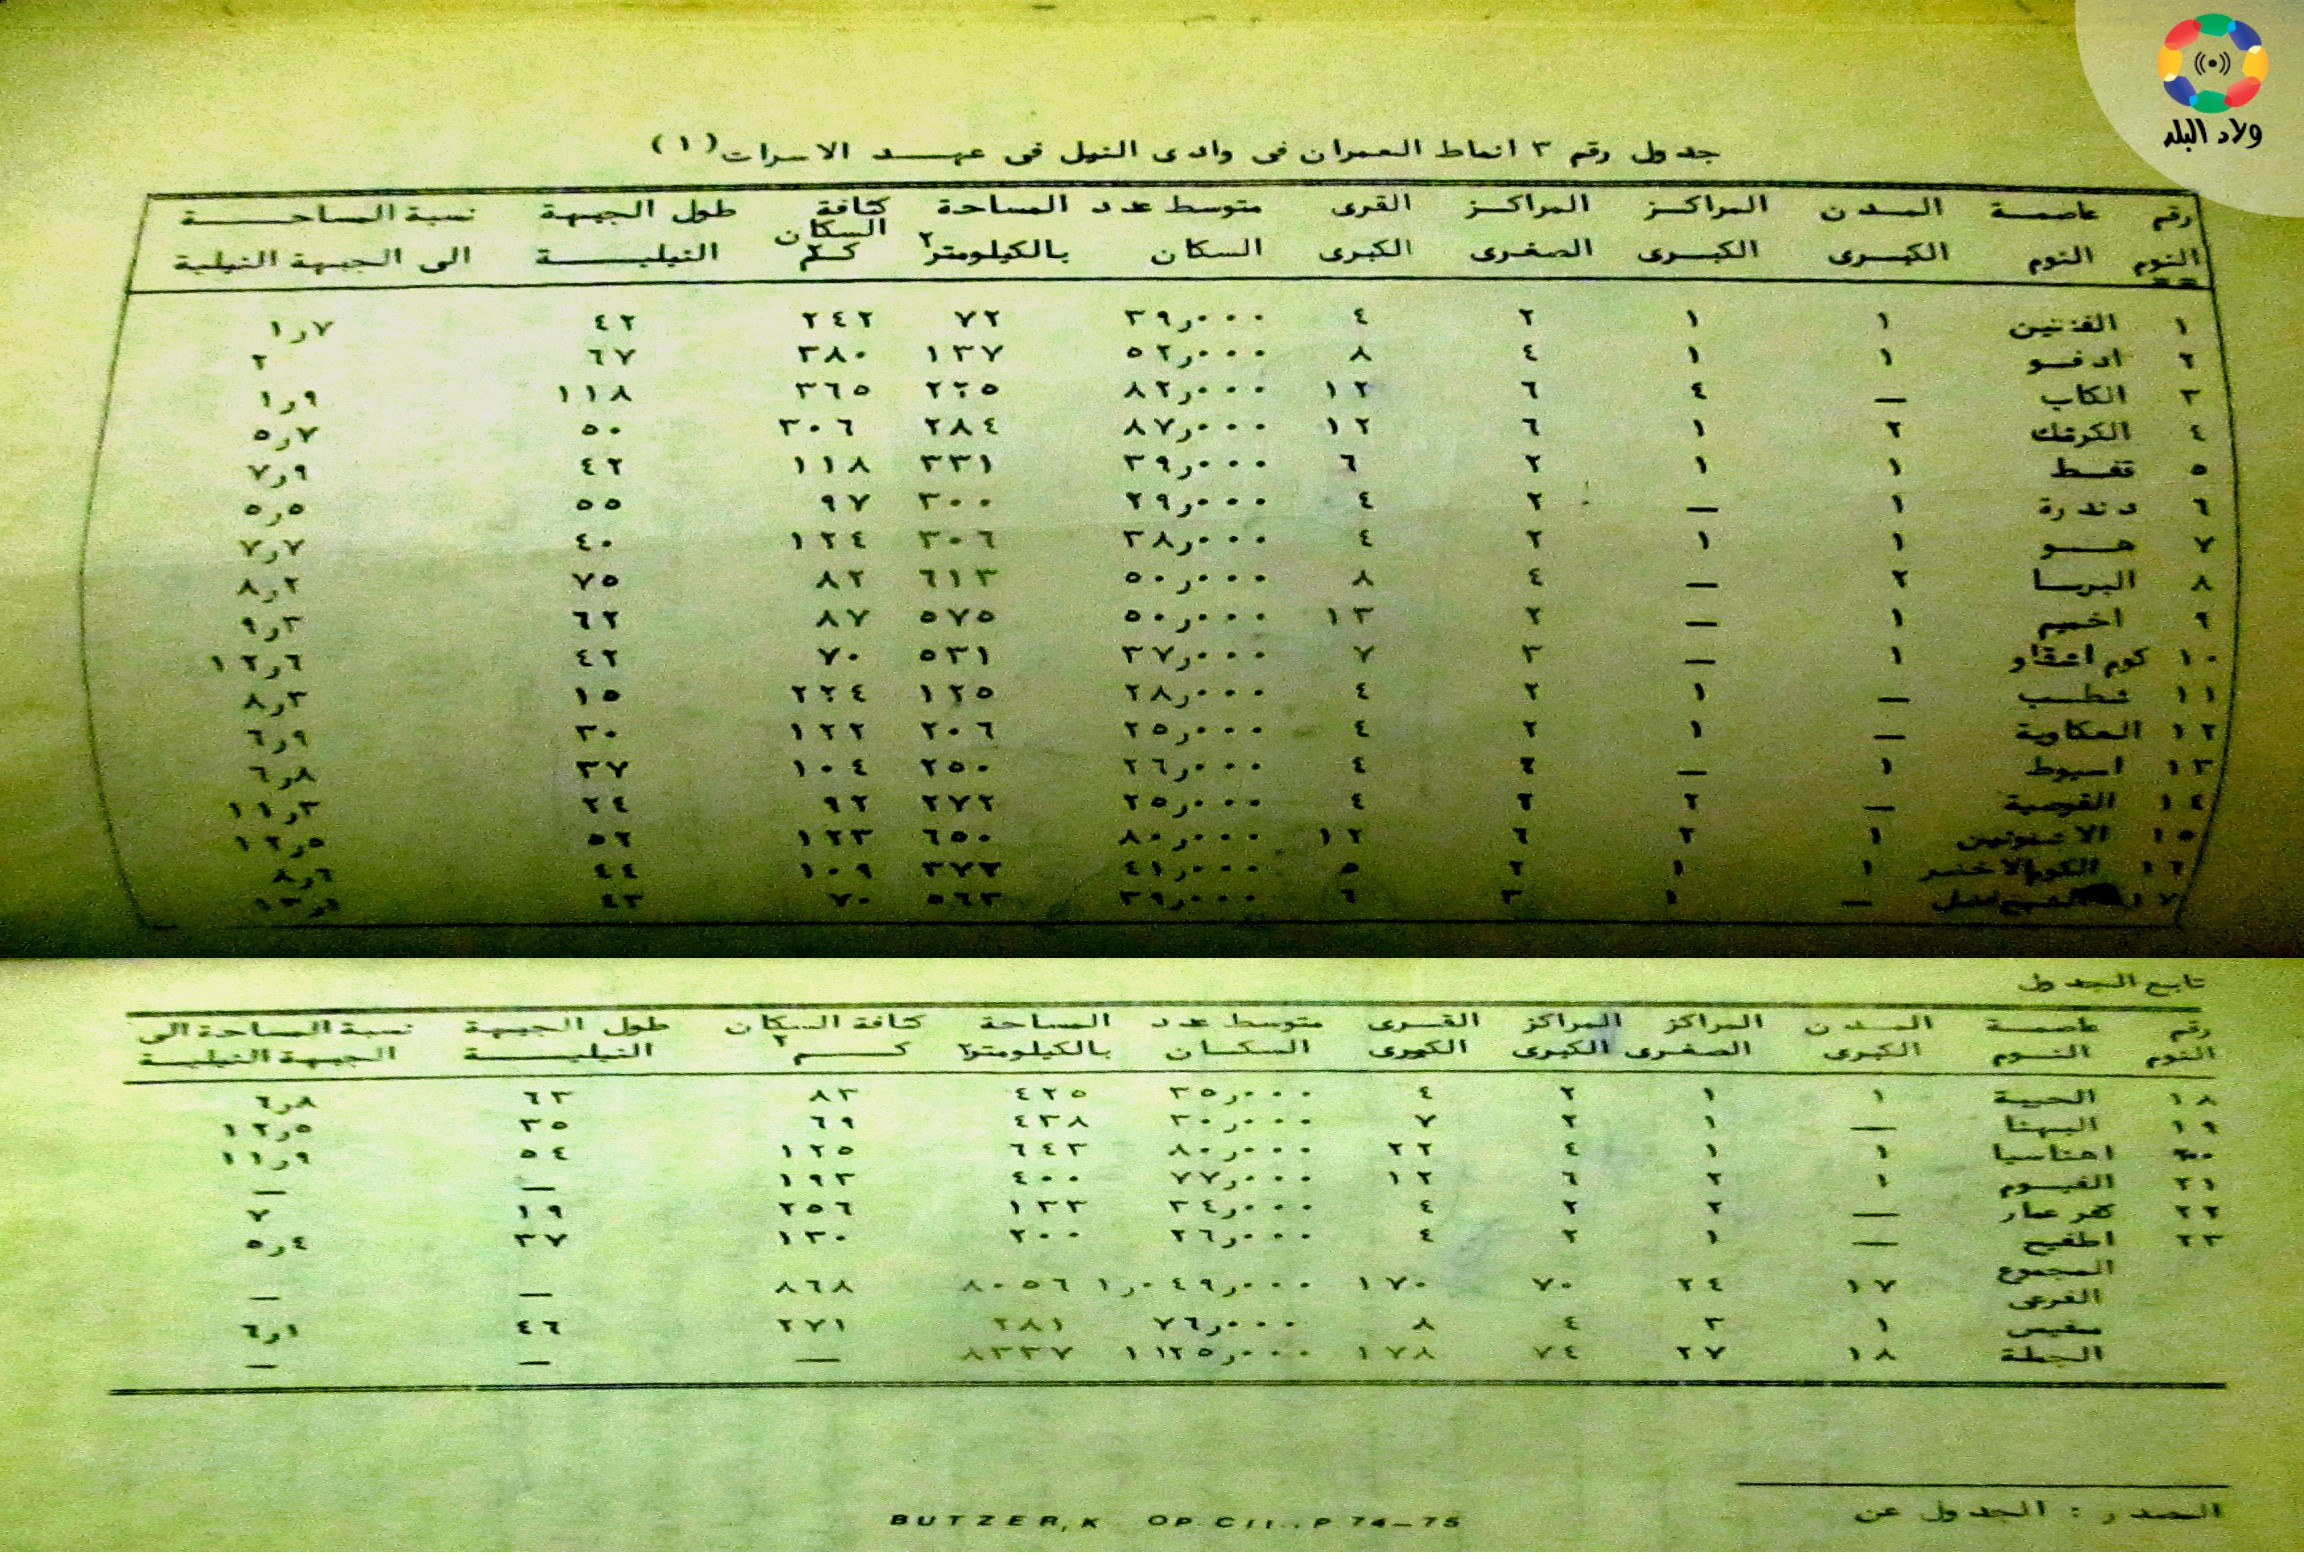 ولاد البلد
جدول رقم ٣ انماط العمران فى وادى النيل فى عهد الاسرات (١)
رقم عاصمة المدن المراكز المراكز القرى متوسط عدد المساحة كثافة السكان طول الجبهة نسبة المساحة
النوم النوم الكبرى الكبرى الصغرى الكبرى السكان بالكيلومتر٢ كم٢ النيلية الى الجبهة النيلية
١ الفنتين ١ ١ ٢ ٤ ٣٩٫٠٠٠ ٧٢ ٢٤٢ ٤٢ ١٫٧
٢ ادفو ١ ١ ٤ ٨ ٥٢٫٠٠٠ ١٣٧ ٣٨٠ ٦٧ ٢
٣ الكاب — ٤ ٦ ١٢ ٨٢٫٠٠٠ ٢٢٥ ٣٦٥ ١١٨ ١٫٩
٤ الكرنك ٢ ١ ٦ ١٢ ٨٧٫٠٠٠ ٢٨٤ ٣٠٦ ٥٠ ٥٫٧
٥ قفط ١ ١ ٢ ٦ ٣٩٫٠٠٠ ٣٣١ ١١٨ ٤٢ ٧٫٩
٦ دندرة ١ — ٢ ٤ ٢٩٫٠٠٠ ٣٠٠ ٩٧ ٥٥ ٥٫٥
٧ هو ١ ١ ٢ ٤ ٣٨٫٠٠٠ ٣٠٦ ١٢٤ ٤٠ ٧٫٧
٨ البربا ٢ — ٤ ٨ ٥٠٫٠٠٠ ٦١٣ ٨٢ ٧٥ ٨٫٢
٩ اخميم ١ — ٢ ١٣ ٥٠٫٠٠٠ ٥٧٥ ٨٧ ٦٢ ٩٫٣
١٠ كوم اشقاو ١ — ٣ ٧ ٣٧٫٠٠٠ ٥٣١ ٧٠ ٤٢ ١٢٫٦
١١ شطب — ١ ٢ ٤ ٢٨٫٠٠٠ ١٢٥ ٢٢٤ ١٥ ٨٫٣
١٢ العكاوية — ١ ٢ ٤ ٢٥٫٠٠٠ ٢٠٦ ١٢٢ ٣٠ ٦٫٩
١٣ اسيوط ١ — ٢ ٤ ٢٦٫٠٠٠ ٢٥٠ ١٠٤ ٣٧ ٦٫٨
١٤ القوصية — ٢ ٢ ٤ ٢٥٫٠٠٠ ٢٧٢ ٩٢ ٢٤ ١١٫٣
١٥ الاشمونين ١ ٢ ٦ ١٢ ٨٠٫٠٠٠ ٦٥٠ ١٢٣ ٥٢ ١٢٫٥
١٦ الكوم الاخضر ١ ١ ٢ ٥ ٤١٫٠٠٠ ٣٧٢ ١٠٩ ٤٤ ٨٫٦
١٧ — ١ ٣ ٦ ٣٩٫٠٠٠ ٥٦٣ ٧٠ ٤٣
تابع الجدول
رقم عاصمة المدن المراكز المراكز القرى متوسط عدد المساحة كثافة السكان طول الجبهة نسبة المساحة الى
النوم النوم الكبرى الصغرى الكبرى الكبرى السكان بالكيلومتر٢ كم٢ النيلية الجبهة النيلية
١٨ الحيبة ١ ١ ٢ ٤ ٣٥٫٠٠٠ ٤٢٥ ٨٣ ٦٣ ٦٫٨
١٩ البهنا — ١ ٢ ٧ ٣٠٫٠٠٠ ٤٣٨ ٦٩ ٣٥ ١٢٫٥
٢٠ اهناسيا ١ ١ ٤ ٢٢ ٨٠٫٠٠٠ ٦٤٣ ١٢٥ ٥٤ ١١٫٩
٢١ الفيوم ١ ٢ ٦ ١٢ ٧٧٫٠٠٠ ٤٠٠ ١٩٣ — —
٢٢ كفر عمار — ٢ ٢ ٤ ٣٤٫٠٠٠ ١٣٣ ٢٥٦ ١٩ ٧
٢٣ اطفيح — ١ ٢ ٤ ٢٦٫٠٠٠ ٢٠٠ ١٣٠ ٣٧ ٥٫٤
المجموع الفرعى ١٧ ٢٤ ٧٠ ١٧٠ ١٫٠٤٩٫٠٠٠ ٨٠٥٦ ٨٦٨ — —
منفيس ١ ٣ ٤ ٨ ٧٦٫٠٠٠ ٢٨١ ٢٧١ ٤٦ ٦٫١
الجملة ١٨ ٢٧ ٧٤ ١٧٨ ١١٢٥٫٠٠٠ ٨٣٣٧ — — —
المصدر : الجدول عن
BUTZER, K OP. CIT., P 74-75